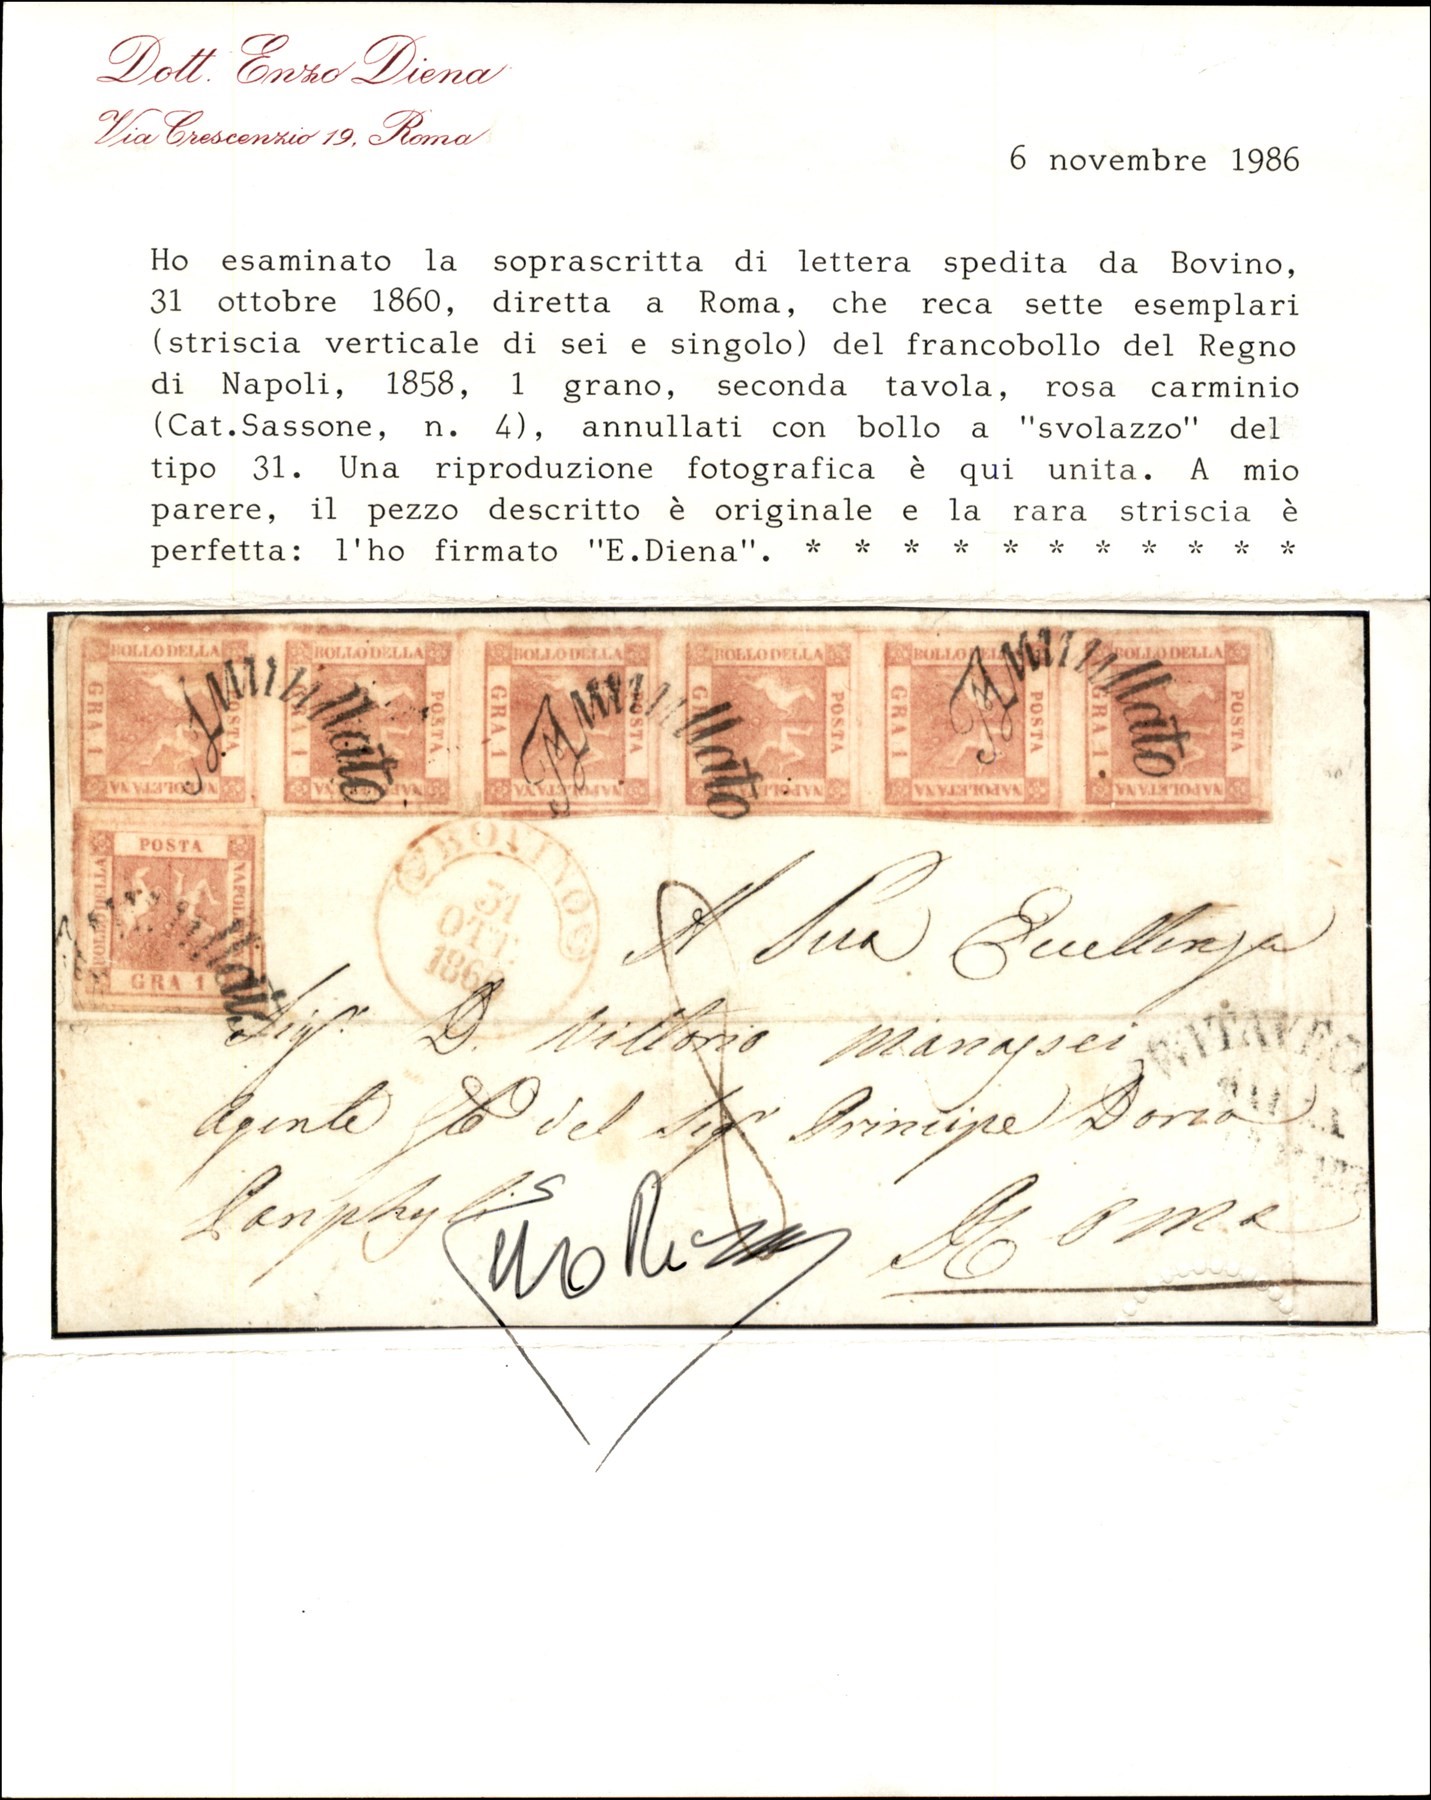 Dott. Enzo Diena
Via Crescenzio 19, Roma
6 novembre 1986
Ho esaminato la soprascritta di lettera spedita da Bovino,
31 ottobre 1860, diretta a Roma, che reca sette esemplari
(striscia verticale di sei e singolo) del francobollo del Regno
di Napoli, 1858, 1 grano, seconda tavola, rosa carminio
(Cat.Sassone, n. 4), annullati con bollo a "svolazzo" del
tipo 31. Una riproduzione fotografica è qui unita. A mio
parere, il pezzo descritto è originale e la rara striscia è
perfetta: l'ho firmato "E.Diena". * * * * * * * * * * *
BOLLO DELLA POSTA NAPOLETANA GRA 1
BOLLO DELLA POSTA NAPOLETANA GRA 1
BOLLO DELLA POSTA NAPOLETANA GRA 1
BOLLO DELLA POSTA NAPOLETANA GRA 1
BOLLO DELLA POSTA NAPOLETANA GRA 1
BOLLO DELLA POSTA NAPOLETANA GRA 1
Annullato Annullato Annullato
POSTA
BOLLO DELLA
GRA 1
Annullato
BOVINO
31
OTT
1860
A Sua Eccellenza
Sigr. D. Vittorio
Agente del Sigr Principe Doria
Roma